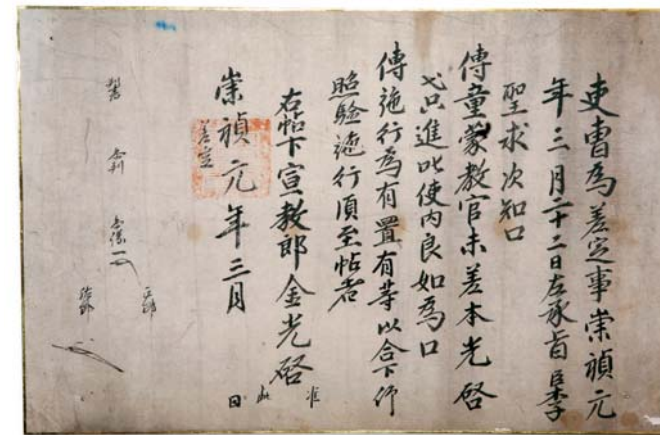 吏曹爲差定事崇禎元
年三月二十二日左承旨臣李
聖求次知口
傳童蒙教官未差本光啓
弋只進叱使內良如爲口
傳施行爲有置有等以合下仰
照驗施行須至帖者
右帖下宣教郎金光啓
崇禎元年三月 日
差定
此 准
判書 參判 參議 正郎 佐郎